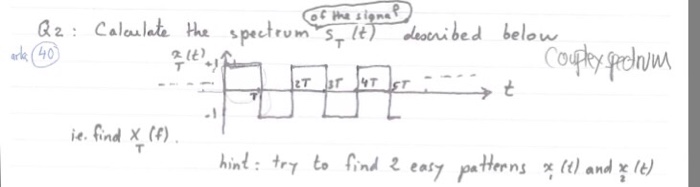 of the signal
Q2: Calculate the spectrum S_T(t) described below
arks (40)
Complex spectrum
x_T(t)
+1
T 2T 3T 4T 5T
t
-1
i.e. find X_T(f).
hint: try to find 2 easy patterns x_1(t) and x_2(t)